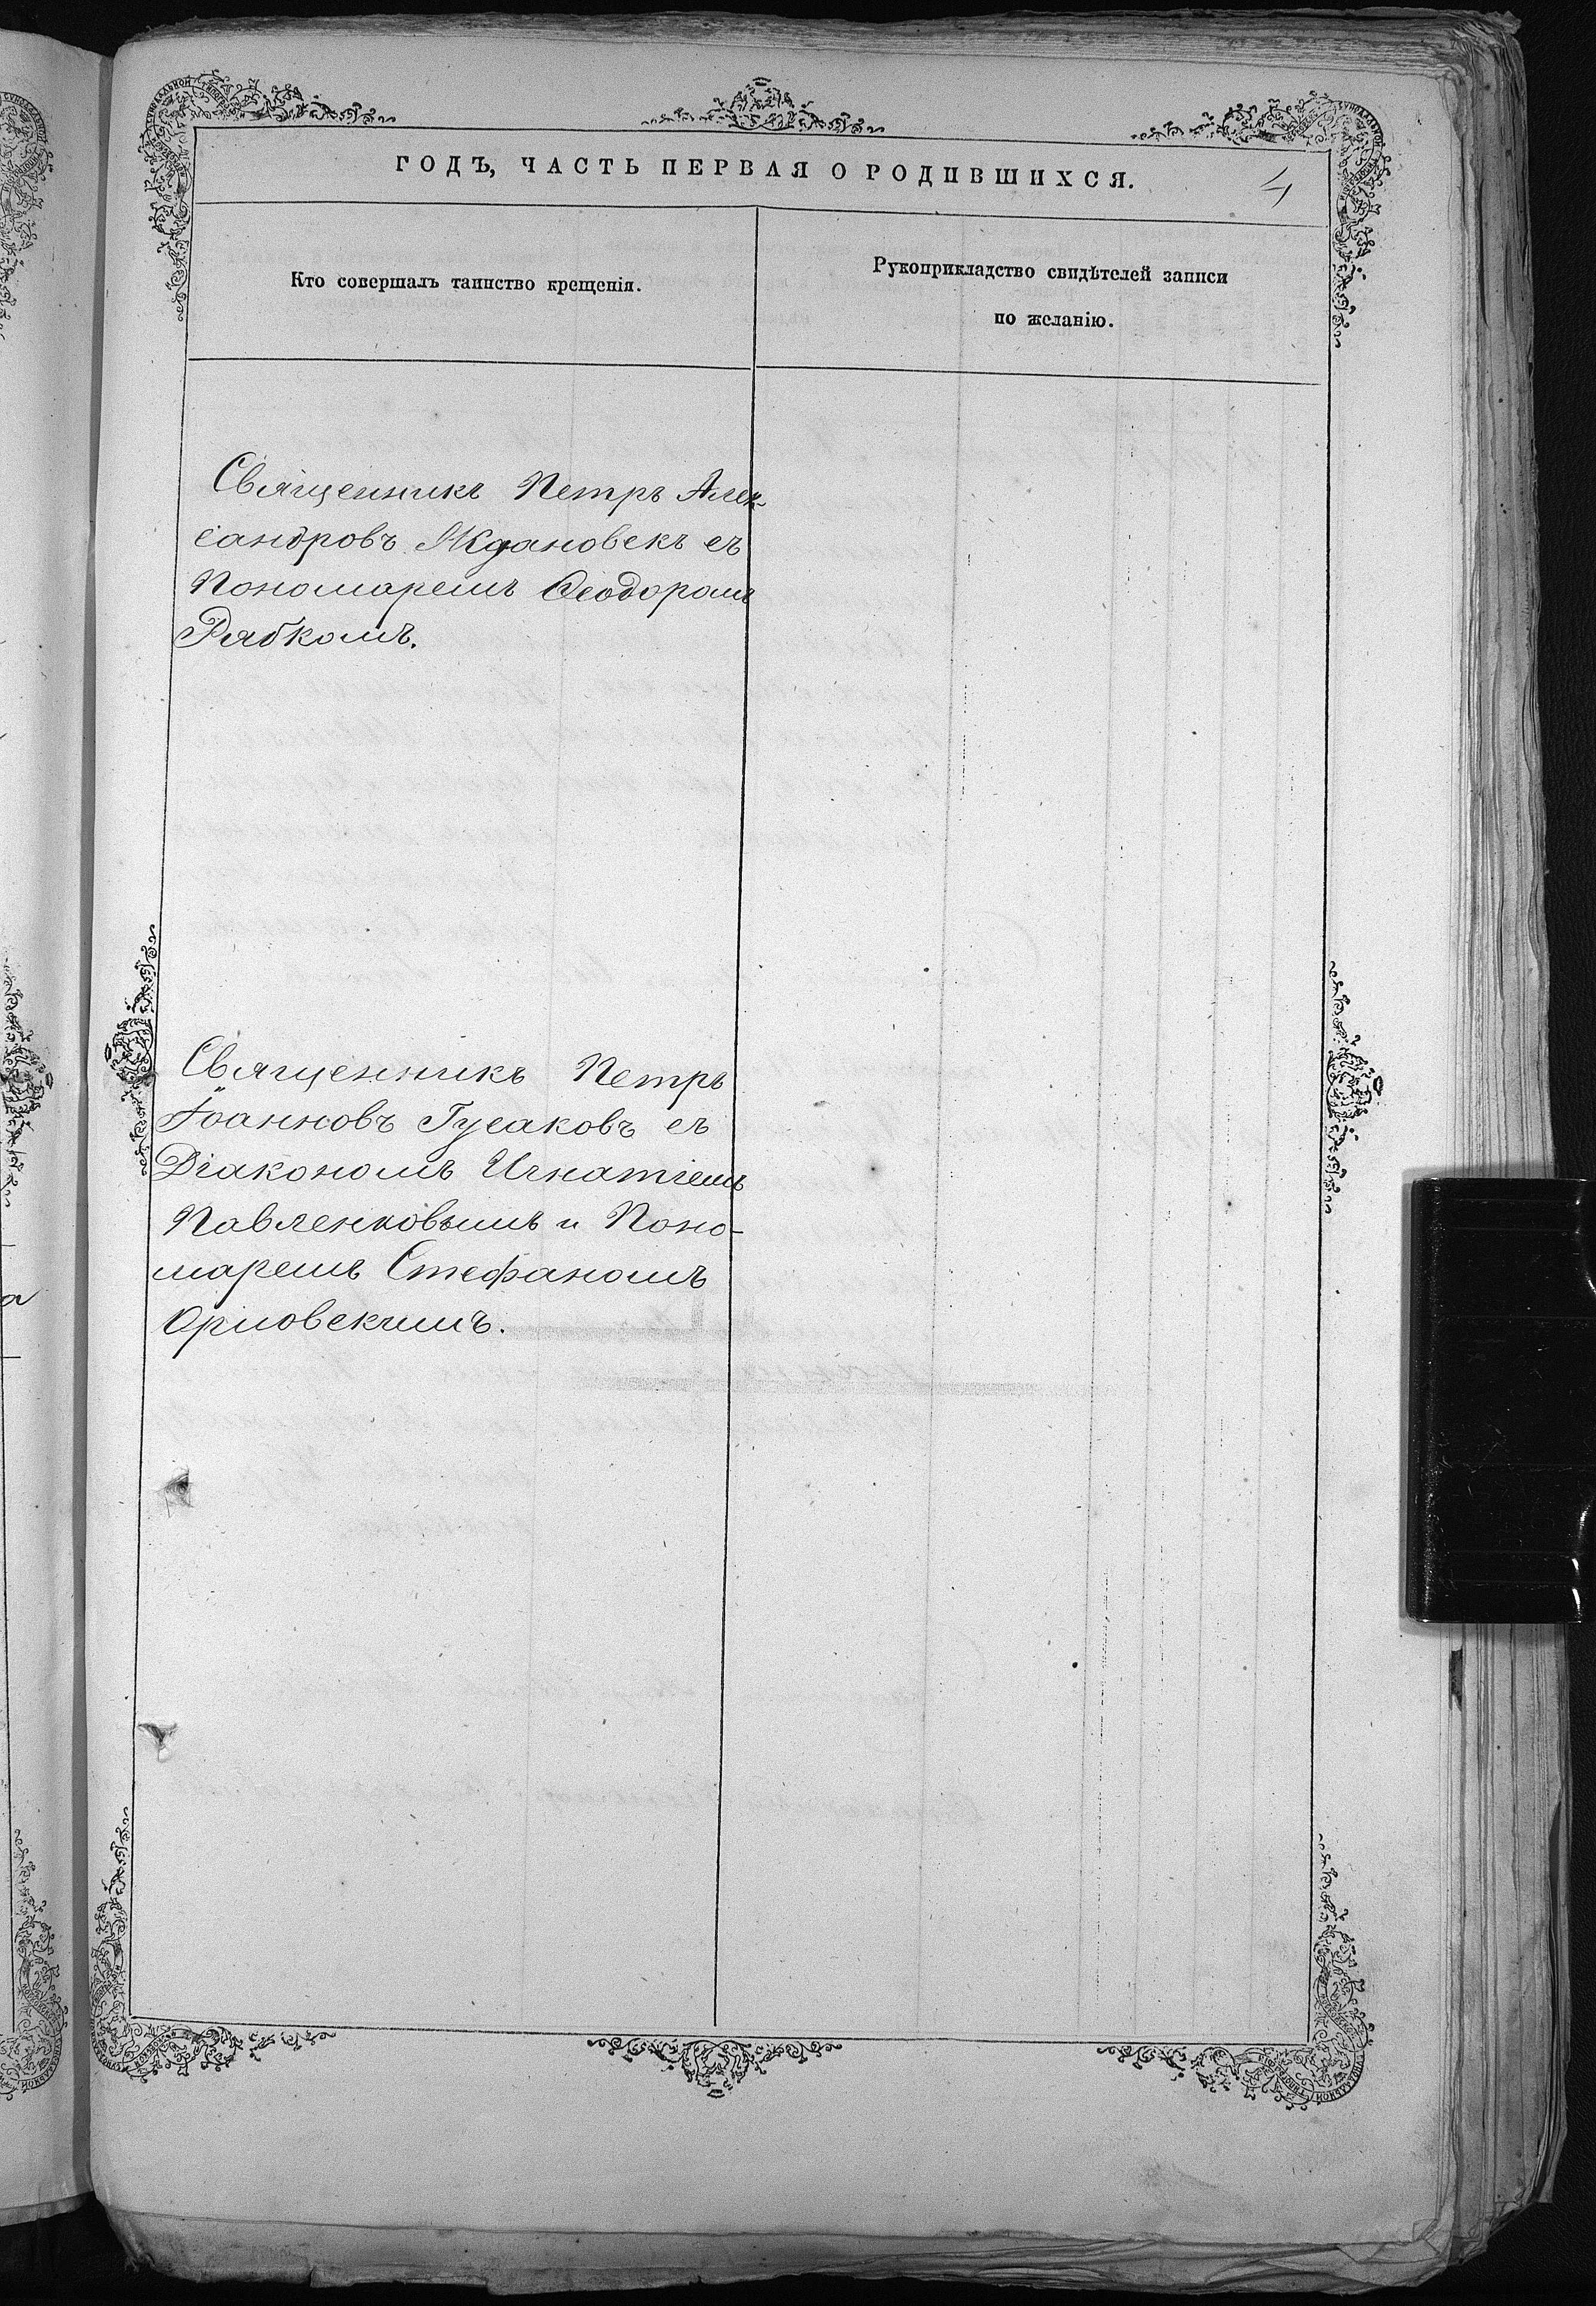 ГОДЪ, ЧАСТЬ ПЕРВАЯ О РОДИВШИХСЯ.
4
Кто совершалъ таинство крещенія.
Рукоприкладство свидѣтелей записи
по желанію.
Священникъ Петръ Алек-
сандровъ Ждановскъ съ
Пономаремъ Ѳеодоромъ
Рябкомъ.
Священникъ Петръ
Іоанновъ Гусаковъ съ
Діакономъ Игнатіемъ
Павленковымъ и Поно-
маремъ Стефаномъ
Орловскимъ.